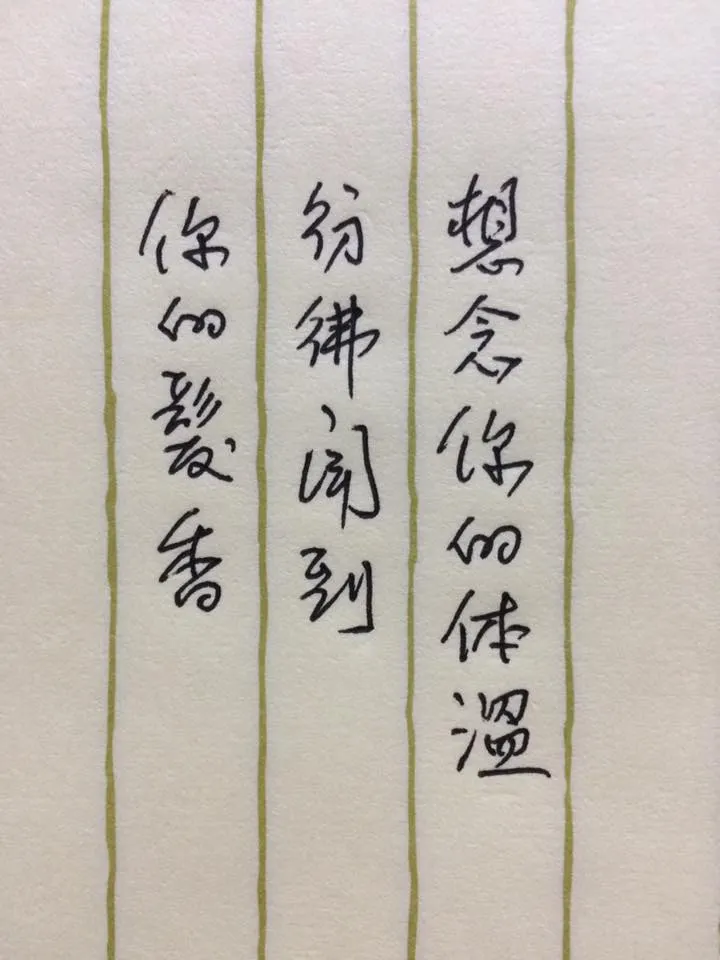 想念你的体溫
彷彿聞到
你的髮香